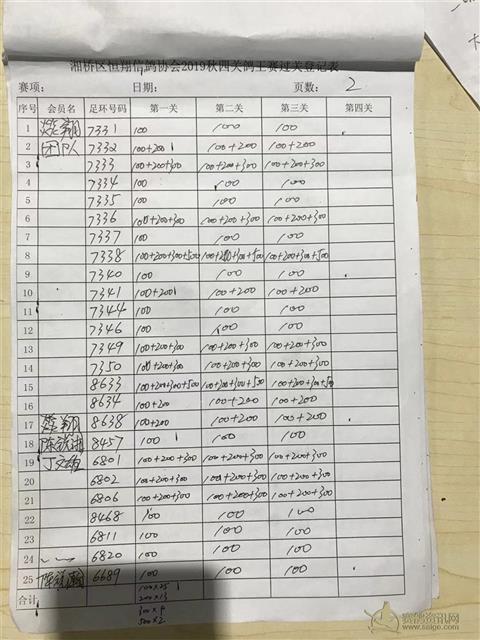 湘桥区恒翔信鸽协会2019秋四关鸽王赛过关登记表
赛项: 日期: 页数: 2
序号 会员名 足环号码 第一关 第二关 第三关 第四关
1 翔 7331 100 100 100
2 团队 7332 100+200 100+200 100+200
3 7333 100+200+300 100+200+300 100+200+300
4 7334 100 100 100
5 7335 100 100 100
6 7336 100+200+300 100+200+300 100+200+300
7 7337 100 100 100
8 7338 100+200+300+500 100+200+300+500 100+200+300+500
9 7340 100 100 100
10 7341 100+200 100+200 100+200
11 7344 100 100 100
12 7346 100 100 100
13 7349 100+200+300 100+200+300 100+200+300
14 7350 100+200+300 100+200+300 100+200+300
15 8633 100+200+300+500 100+200+300+500 100+200+300+500
16 8634 100+200 100+200 100+200
17 翔 8638 100+200 100+200 100+200
18 陈 8457 100 100 100
19 丁文 6801 100+200+300 100+200+300 100+200+300
20 6802 100+200+300 100+200+300 100+200+300
21 6806 100+200+300 100+200+300 100+200+300
22 8468 100 100 100
23 6811 100 100 100
24 6820 100 100 100
25 陈 6689 100 100 100
合计 100×25
200×13
300×9
500×2
赛鸽资讯网
www.saige.com